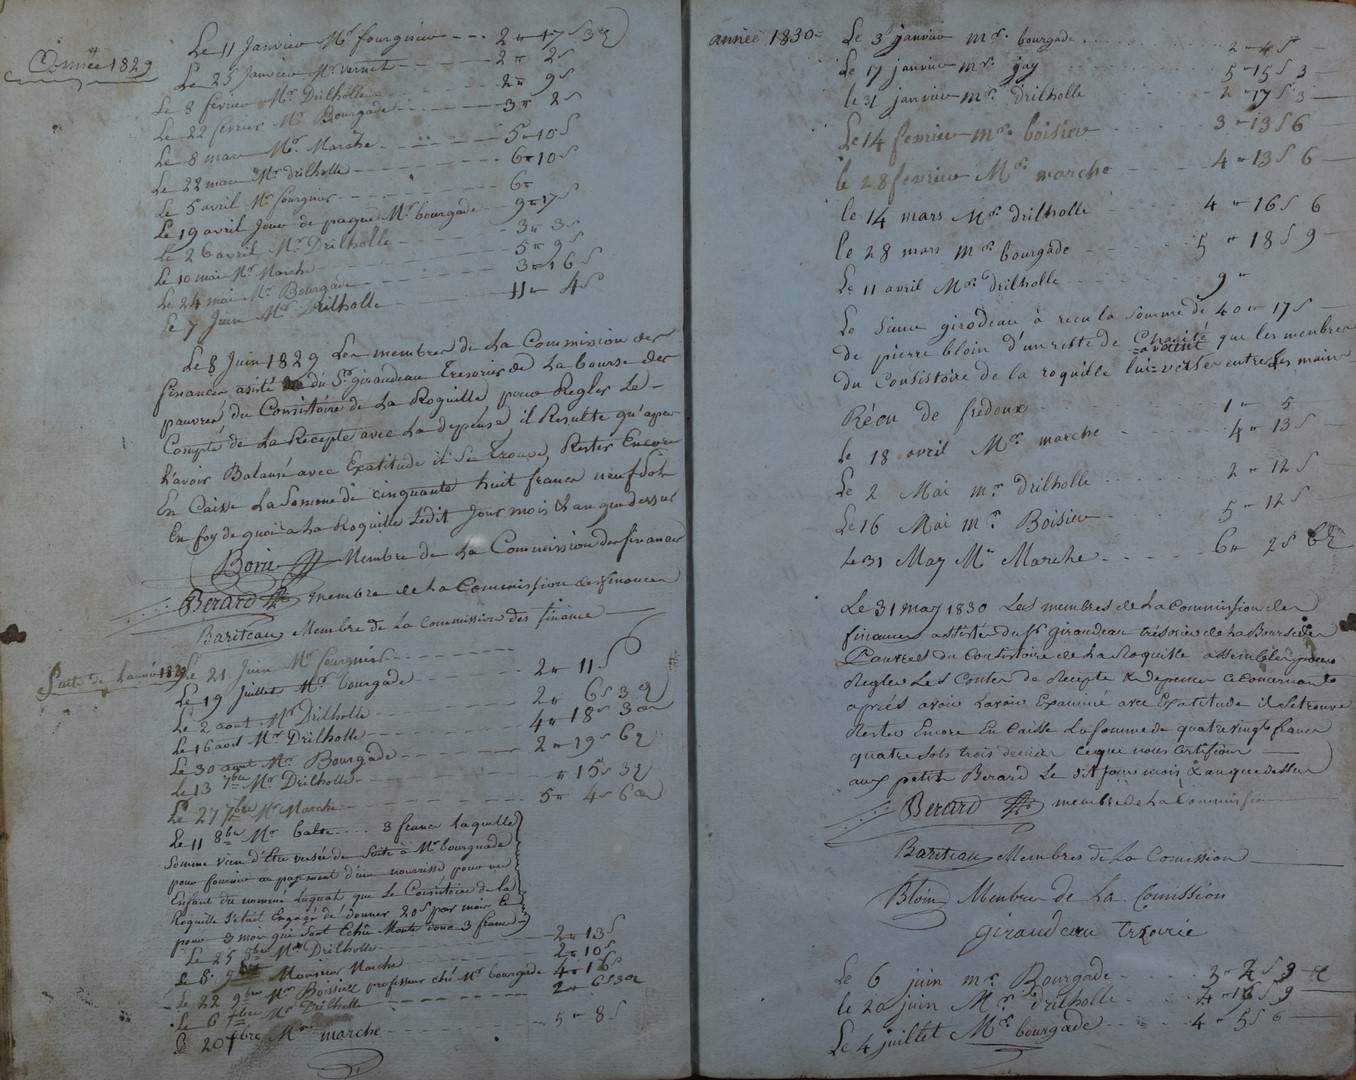 Année 1829
Le 11 Janvier Mr fourgnier --- 2 # 17 s 3 d
Le 25 Janvier Mr vernet --- 2 # 2 s
Le 8 fevrier Mr Drilholle --- 2 # 9 s
Le 22 fevrier Mr Bourgade --- 3 # 2 s
Le 8 mars Mr Marche --- 5 # 10 s
Le 22 mars Mr drilholle --- 6 # 10 s
Le 5 avril Mr fourgnier --- 6 #
Le 19 avril Jour de paque Mr bourgade -- 9 # 17 s
Le 26 avril Mr Drilholle --- 3 # 3 s
Le 10 mai Mr Marche --- 5 # 9 s
Le 24 mai Mr Bourgade --- 3 # 16 s
Le 7 Juin Mr Drilholle --- 11 # 4 s
Le 8 Juin 1829 Les membres de La Commission des
finances asisté du Sr giraudeau Tresorier de La bourse des
pauvres du Consistoire de La Roquille pour Regler Le
Compte de La Recepte avec La depense, il Resulte qu'apres
L'avoir Balansé avec Exatitude il Se trouve, Rester Encore
En Caisse La Somme de cinquante huit francs neuf Sols
En foy de quoi a La Roquille Ledit Jour mois & an que dessus
Membre de La Commission des finances
Berard membre de La Commission des finances
Bariteau Membre de La Commission des finance
Suite de L'année 1829
Le 21 Juin Mr fourgnier ---
Le 19 Juillet Mr Bourgade --- 2 # 11 s
Le 2 aout Mr Drilholle --- 2 # 6 s 3 d
Le 16 aout Mr Drilholle --- 4 # 18 s 3 d
Le 30 aout Mr Bourgade --- 2 # 19 s 6 d
Le 13 7bre Mr Drilholle --- # 15 s 3 d
Le 27 7bre Mr Marche --- 5 # 4 s 6 d
Le 11 8bre Mr --- 3 francs Laquelle
Somme vien d'Etre versée de Suite à Mr bourgade
pour fournir au payement d'une nourrisse pour un
Enfant du nommé Laquat que Le Consistoire de la
Roquille s'était Engagé de donner 20 s par mois Et
pour 3 mois qui Sont Echu Monte donc 3 francs
Le 25 8bre Mr Drilholle --- 2 # 13 s
Le 8 9bre Monsieur Marche --- 2 # 10 s
Le 22 9bre Mr Boissier professeur ché Mr bourgade 4 # 1 s
Le 6 Mr Drilholle --- 2 # 6 s 3 d
Le 20 Mr marche --- 5 # 8 s
année 1830 =
Le 3 janvier mr bourgade --- 2 # 4 s
Le 17 janvier mr jay --- 5 # 15 s 3
le 31 janvier mr drilholle --- 2 # 17 s 3
Le 14 fevrier mr boisier --- 3 # 13 s 6
le 28 fevrier Mr marche --- 4 # 13 s 6
le 14 mars Mr drilholle --- 4 # 16 s 6
le 28 mars mr bourgade --- 5 # 18 s 9
Le 11 avril Mr drilholle --- 9 #
Le Sieur girodeau à recu la Somme de 40 # 17 s
de pierre bloin d'un reste de Charité que les menbres
avaient
du Consistoire de la roquille lui verser entre les mains
Réou de fredoux --- 1 # 5
le 18 avril Mr marche --- 4 # 13 s
Le 2 Mai mr drilholle --- 2 # 12 s
Le 16 Mai mr Boisier --- 5 # 12 s
Le 31 May Mr Marche --- 6 # 2 s 6 d
Le 31 may 1830 Les membres de La Commission des
finances assistés du Sr giraudeau trésorier de La Bourse des
Pauvres du Consistoire de La Roquille assembler pour
Regler Les Contes de Recepte & depense Concernant
après avoir Lavoir Examiné avec Exatitude il se trouve
Rester Encore En Caisse La Somme de quatre vingts francs
quatre Sols trois denier Ce que nous Certifions
aux petit Berard Le dit Jour mois & an que dessus
Berard membre de La Commission
Bariteau Membres de La Comission
Bloin Menbre de La Comission
giraudeau
Le 6 juin mr Bourgade --- 3 # 2 s 9 d
le 20 juin Mr drilholle --- 4 # 16 s 9
Le 4 juillet Mr bourgade --- 4 # 5 s 6